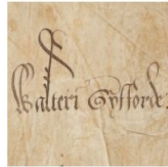 Walteri Gyfforde